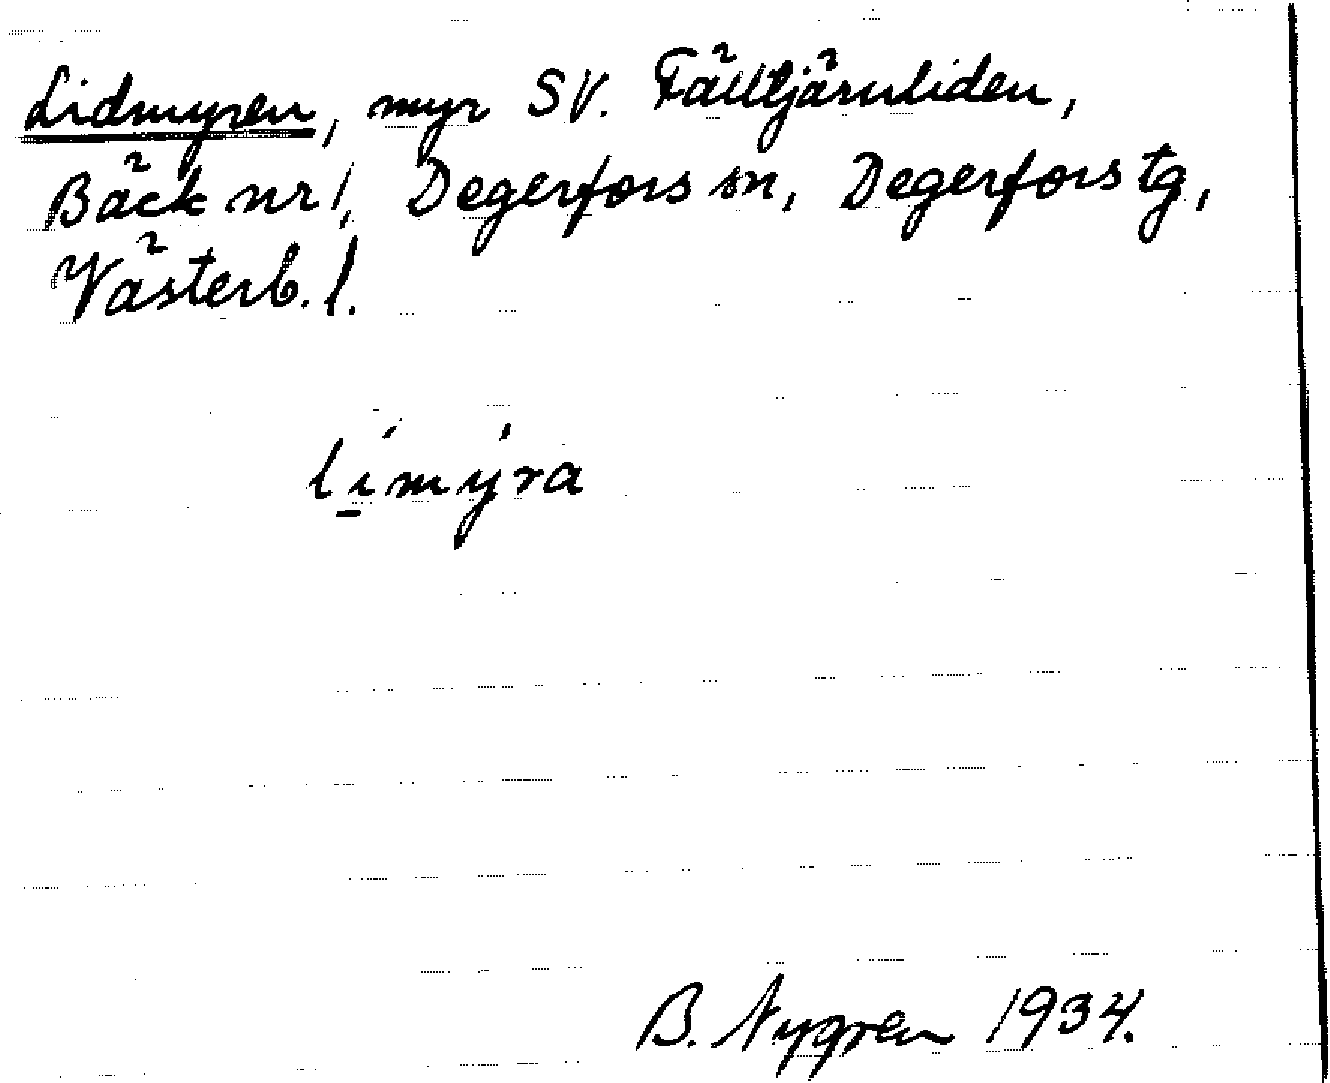 Lidmyren, myr SV. Fälltjärnliden,
Bäck nr 1, Degerfors sn, Degerfors tg,
Västerb. l.
lí̱mýra
B. Nygren 1934.